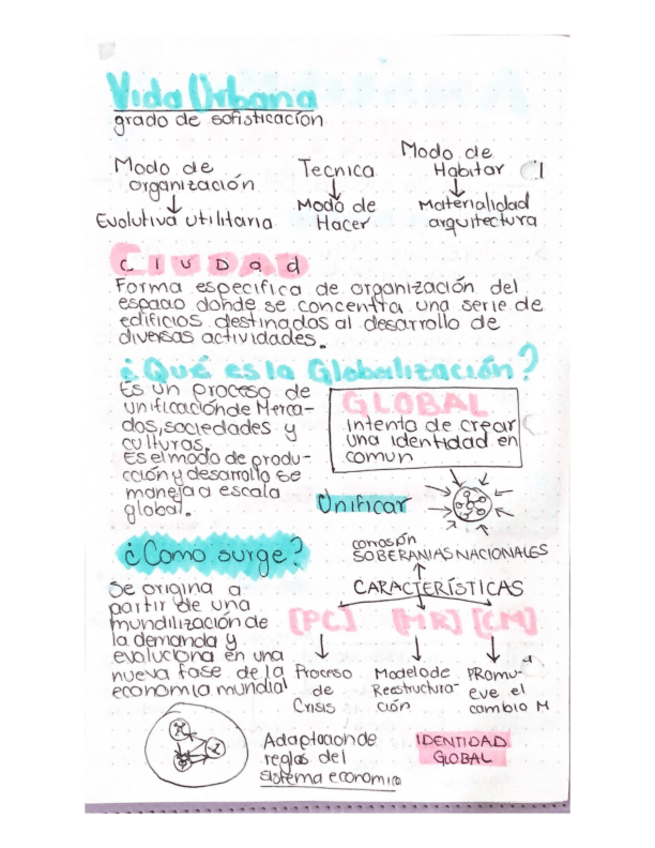 Vida Urbana
grado de sofisticación
Modo de organización
↓
Evolutiva utilitaria
Tecnica
↓
Modo de Hacer
Modo de Habitar
↓
Materialidad arquitectura
CIUDAd
Forma especifica de organización del
espacio donde se concentra una serie de
edificios destinados al desarrollo de
diversas actividades.
¿Qué es la Globalización?
Es un proceso de
unificación de Merca-
dos, sociedades y
culturas.
Es el modo de produ-
cción y desarrollo se
maneja a escala
global.
GLOBAL
intento de crear
una identidad en
comun
Unificar
¿Como surge?
Se origina a
partir de una
mundilización de
la demanda y
evoluciona en una
nueva fase de la
economia mundial
corrosión
SOBERANIAS NACIONALES
↑
CARACTERÍSTICAS
[PC] [MR] [CM]
Proceso
de
Crisis
Modelo de
Reestructura-
ción
PRomu-
eve el
cambio M
Adaptacion de
reglas del
sistema economico
IDENTIDAD
GLOBAL